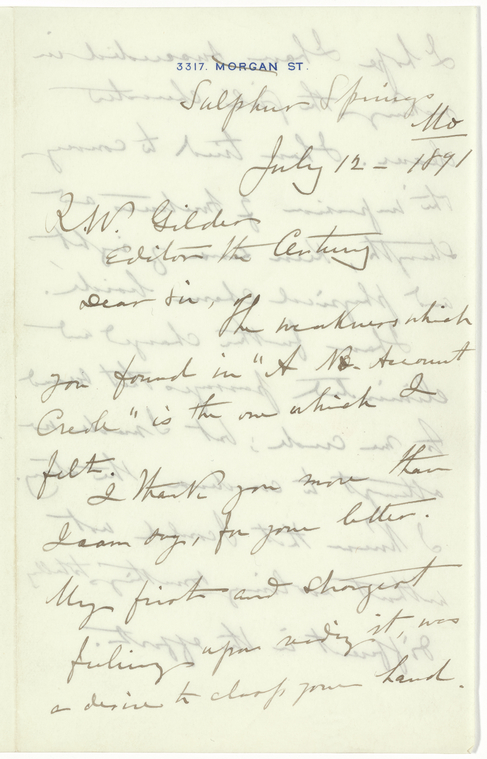 3317. MORGAN ST.
Sulphur Springs
Mo
July 12 - 1891
R.W. Gilder
Editor the Century
Dear Sir,
The weakness which
you found in "A No-Account
Creole" is the one which I
felt.
I thank you more than
I can say, for your letter.
My first and strongest
feeling upon reading it, was
a desire to clasp your hand.